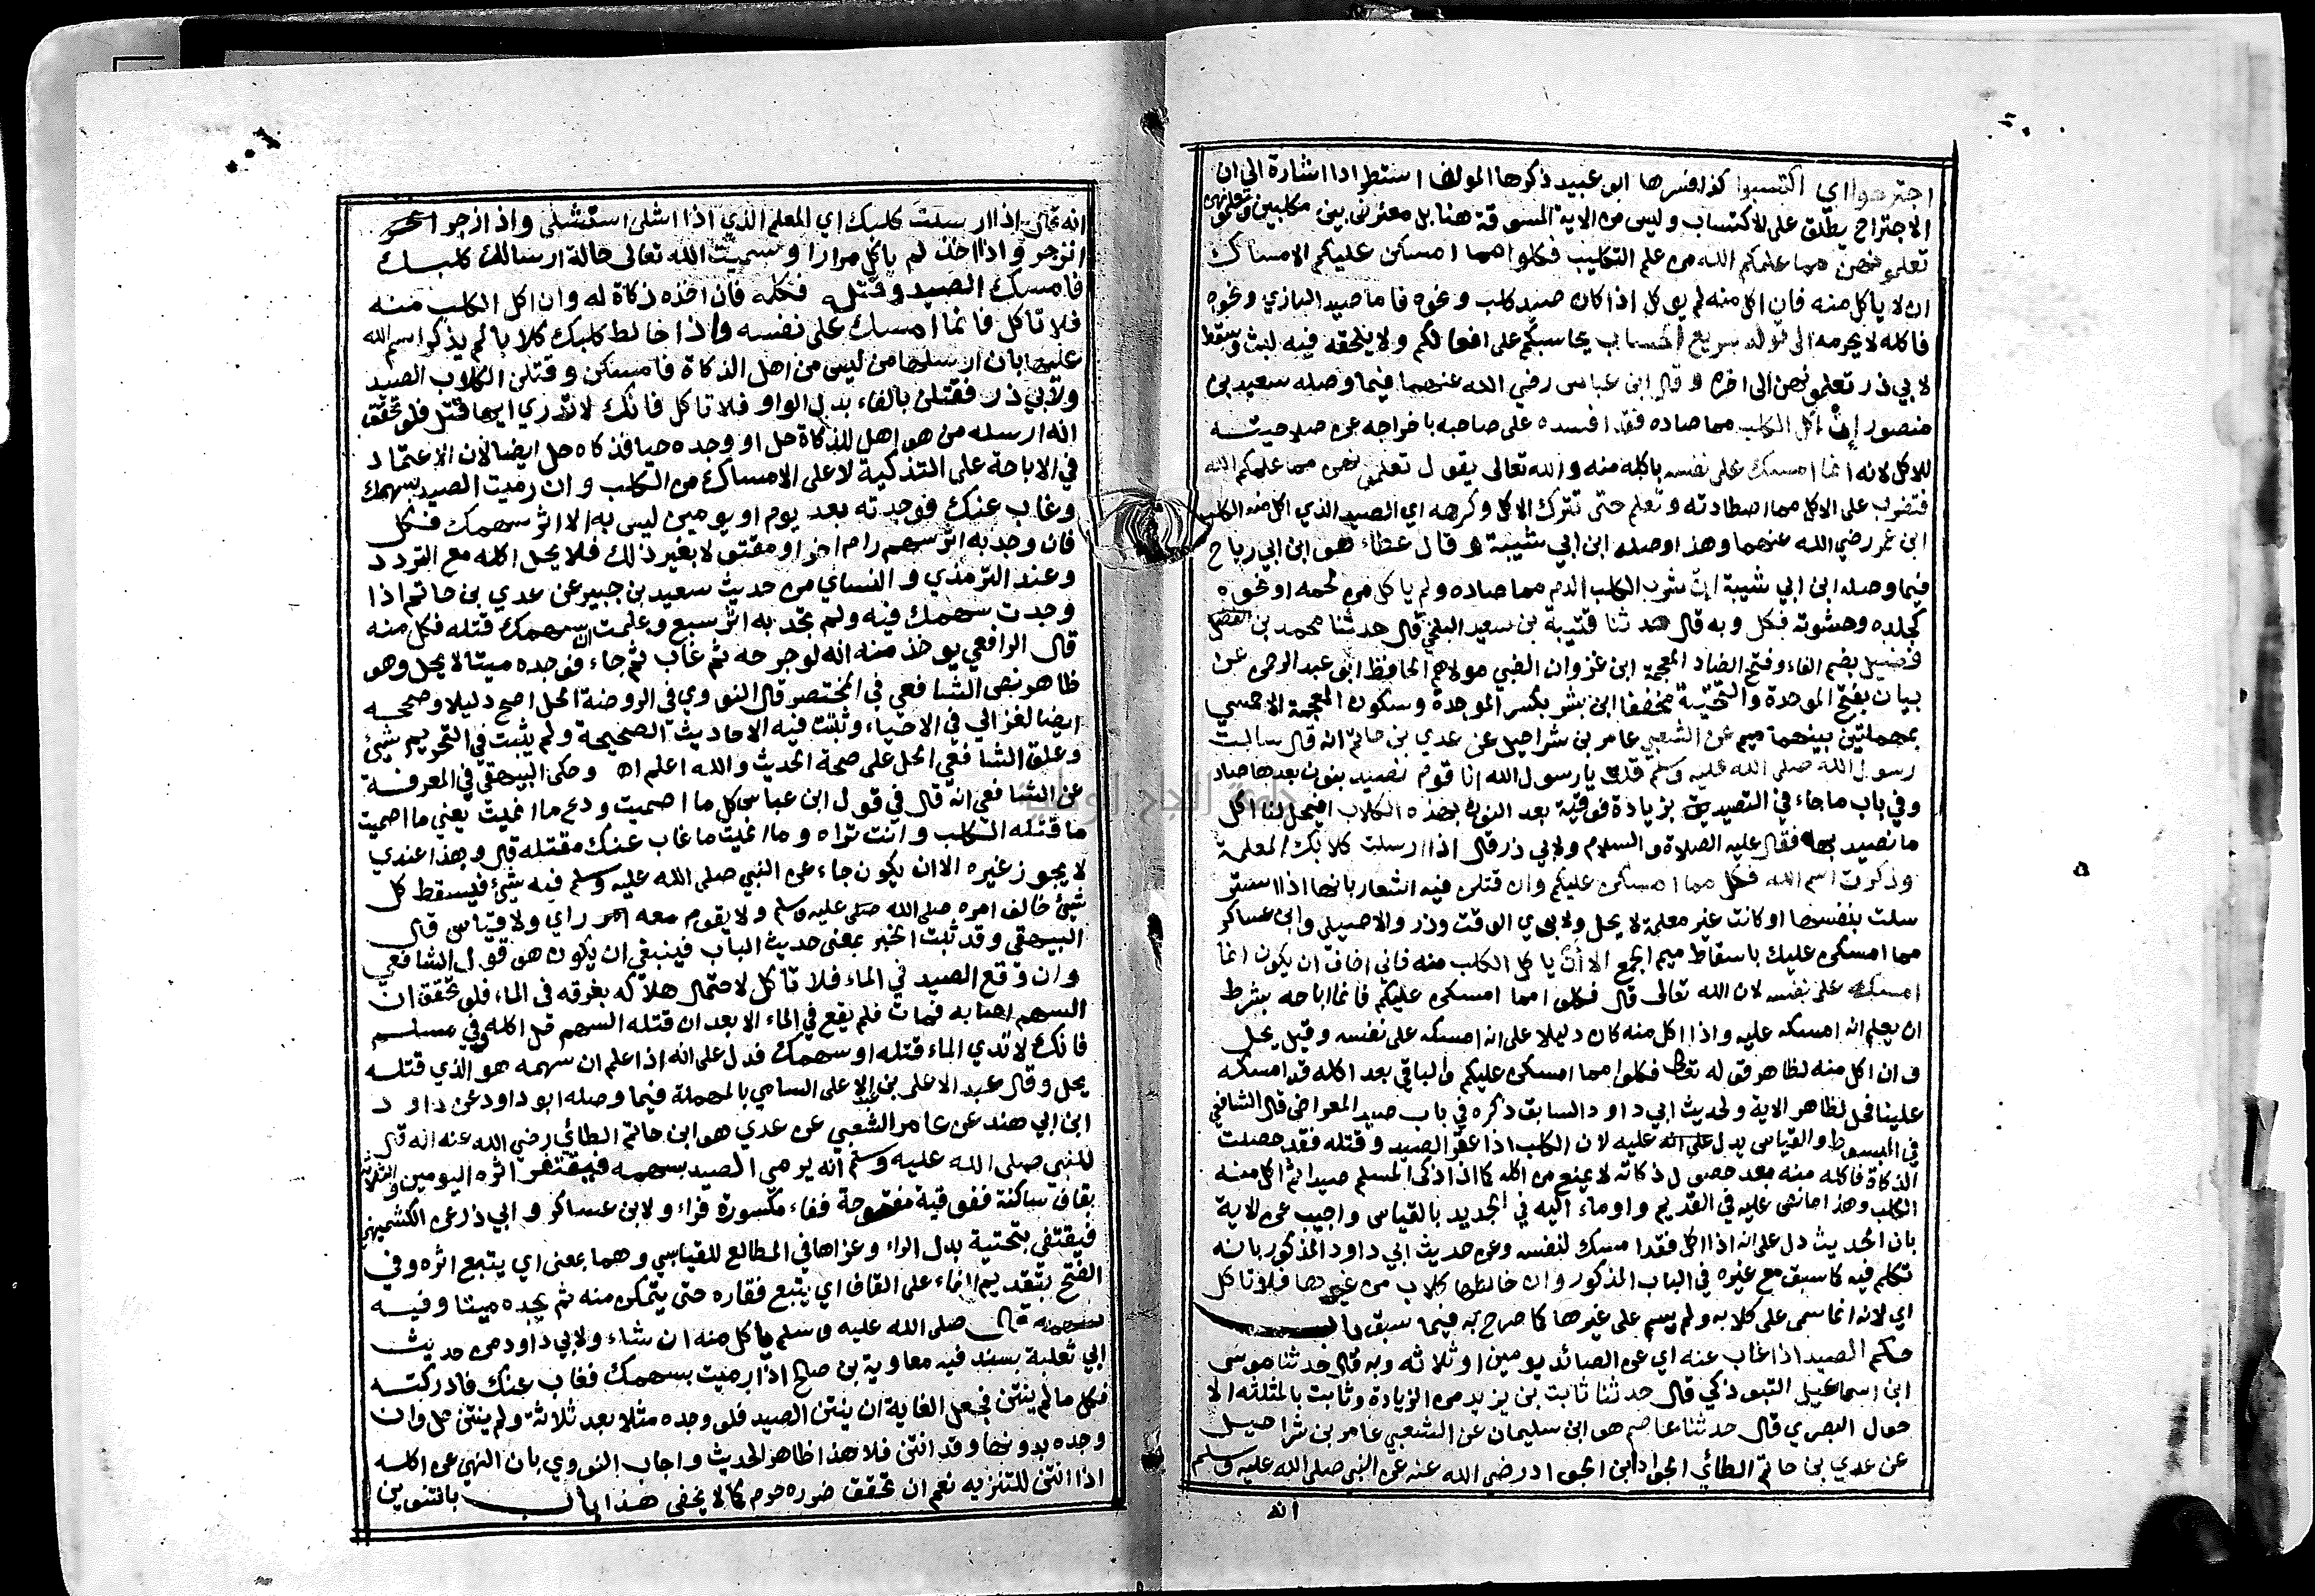 اجترحوا اي اكتسبوا كذا فسرها ابو عبيد ذكرها المولف استطرادا اشارة الى ان
الاجتراح يطلق على الاكتساب وليس من الاية المسوقة هنا بل معترض بين مكلبين وتعلمونهن
تعلمونهن مما علمكم الله من علم التكليب فكلوا مما امسكن عليكم الامساك
ان لا ياكل منه فان اكل منه لم يوكل اذا كان صيد كلب ونحوه فاما صيد البازي ونحوه
فاكله لا يحرمه الى قوله سريع الحساب يحاسبكم على افعالكم ولا يلحقه فيه لبث وسقط
لابي ذر تعلمونهن الى اخره وقال ابن عباس رضي الله عنهما فيما وصله سعيد بن
منصور ان اكل الكلب مما صاده فقد افسده على صاحبه باخراجه عن صلاحيته
للاكل لانه انما امسك على نفسه باكله منه والله تعالى يقول تعلمونهن مما علمكم الله
فتضرب على الاكل مما اصطادته وتعلم حتى تترك الاكل وكرهه اي الصيد الذي اكل منه الكلب
ابن عمر رضي الله عنهما وهذا وصله ابن ابي شيبة وقال عطاء هو ابن ابي رباح
فيما وصله ابن ابي شيبة ان شرب الكلب الدم مما صاده ولم ياكل من لحمه او نحوه
كجلده وحشوته فكل وبه قال حدثنا قتيبة بن سعيد البلخي قال حدثنا محمد بن
فضيل بضم الفاء وفتح الضاد المعجمة ابن غزوان الضبي مولاهم الحافظ ابو عبد الرحمن عن
بيان بفتح الموحدة والتحتية مخففا ابن بشر بكسر الموحدة وسكون المعجمة الاحمسي
بمهملتين بينهما ميم عن الشعبي عامر بن شراحيل عن عدي بن حاتم انه قال سالت
رسول الله صلى الله عليه وسلم قلت يا رسول الله انا قوم نصيد بنون بعدها صاد
وفي باب ما جاء في التصيد بزيادة فوقية بعد النون بهذه الكلاب افيحل لنا اكل
ما نصيد بها فقال عليه الصلاة والسلام ولابي ذر قال اذا ارسلت كلابك المعلمة
وذكرت اسم الله فكل مما امسكن عليكم وان قتلن فيه اشعار بانها اذا استر
سلت بنفسها او كانت غير معلمة لا يحل ولابوي الوقت وذر والاصيلي وابن عساكر
مما امسكن عليك باسقاط ميم الجمع الا ان ياكل الكلب منه فاني اخاف ان يكون انما
امسكه على نفسه لان الله تعالى قال فكلوا مما امسكن عليكم فانما اباحه بشرط
ان يعلم انه امسكه عليه واذا اكل منه كان دليلا على انه امسكه على نفسه وقيل يحل
وان اكل منه لظاهر قوله تعالى فكلوا مما امسكن عليكم والباقي بعد اكله قد امسكه
علينا فحل لظاهر الاية ولحديث ابي داود السابق ذكره في باب صيد المعراض قال الشافعي
في المبسوط والقياس يدل على انه عليه لان الكلب اذا عقر الصيد وقتله فقد حصلت
الذكاة فاكله منه بعد حصول ذكاته لا يمنع من اكله كما اذا ذكى المسلم صيدا ثم اكل منه
الكلب وهذا ما نص عليه في القديم واوماء اليه في الجديد بالقياس واجيب عن الاية
بان الحديث دل على انه اذا اكل فقد امسك لنفسه وعن حديث ابي داود المذكور بانه
تكلم فيه كما سبق مع غيره في الباب المذكور وان خالطها كلاب من غيرها فلا تاكل
اي لانه انما سمى على كلابه ولم يسم على غيرها كما صرح به فيما سبق باب
حكم الصيد اذا غاب عنه اي عن الصائد يومين او ثلاثة وبه قال حدثنا موسى
ابن اسماعيل التبوذكي قال حدثنا ثابت بن يزيد من الزيادة وثابت بالمثلثة الا
حول البصري قال حدثنا عاصم هو ابن سليمان عن الشعبي عامر بن شراحيل
عن عدي بن حاتم الطائي الجواد ابن الجواد رضي الله عنه عن النبي صلى الله عليه وسلم
انه
انه قال اذا ارسلت كلبك اي المعلم الذي اذا اشلى استشلى واذا زجر
انزجر واذا اخذ لم ياكل مرارا وسميت الله تعالى حالة ارسالك كلبك
فامسك الصيد وقتله فكله فان اخذه ذكاة له وان اكل الكلب منه
فلا تاكل فانما امسك على نفسه واذا خالط كلبك كلابا لم يذكر اسم الله
عليها بان ارسلها من ليس من اهل الذكاة فامسكن وقتلن الكلاب الصيد
ولابي ذر فقتلن بالفاء بدل الواو فلا تاكل فانك لا تدري ايها قتل فلو تحقق
انه ارسله من هو اهل للذكاة حل او وجده حيا فذكاه حل ايضا لان الاعتماد
في الاباحة على التذكية لا على الامساك من الكلب وان رميت الصيد بسهمك
وغاب عنك فوجدته بعد يوم او يومين ليس به الا اثر سهمك فكل
فان وجد به اثر سهم رام اخر او مقتول بغير ذلك فلا يحل اكله مع التردد
وعند الترمذي والنساي من حديث سعيد بن جبير عن عدي بن حاتم اذا
وجدت سهمك فيه ولم تجد به اثر سبع وعلمت ان سهمك قتله فكل منه
قال الرافعي يوخذ منه انه لو جرحه ثم غاب ثم جاء فوجده ميتا لا يحل وهو
ظاهر نص الشافعي في المختصر قال النووي في الروضة الحل اصح دليلا وصححه
ايضا الغزالي في الاحياء وثبتت فيه الاحاديث الصحيحة ولم يثبت في التحريم شيئ
وعلق الشافعي الحل على صحة الحديث والله اعلم اه وحكى البيهقي في المعرفة
عن الشافعي انه قال في قول ابن عباس كل ما اصميت ودع ما انميت يعني ما اصميت
ما قتله الكلب وانت تراه وما انميت ما غاب عنك مقتله قال وهذا عندي
لا يجوز غيره الا ان يكون جاء عن النبي صلى الله عليه وسلم فيه شيئ فيسقط كل
شيئ خالف امره صلى الله عليه وسلم ولا يقوم معه راي ولا قياس قال
البيهقي وقد ثبت الخبر بمعنى حديث الباب فينبغي ان يكون هو قول الشافعي
وان وقع الصيد في الماء فلا تاكل لاحتمال هلاكه بغرقه في الماء فلو تحقق ان
السهم اصابه فمات فلم يقع في الماء الا بعد ان قتله السهم حل اكله وفي مسلم
فانك لا تدري الماء قتله او سهمك فدل على انه اذا علم ان سهمه هو الذي قتله
يحل وقال عبد الاعلى بن عبد الاعلى السامي بالمهملة فيما وصله ابو داود عن داود
ابن ابي هند عن عامر الشعبي عن عدي هو ابن حاتم الطائي رضي الله عنه انه قال
للنبي صلى الله عليه وسلم انه يرمي الصيد بسهمه فيقتفر اثره اليومين والثلاثة
بقاف ساكنة ففوقية مفتوحة ففاء مكسورة فراء ولابن عساكر وابي ذر عن الكشميهني
فيقتفي بتحتية بدل الراء وعزاها في المطالع للقابسي وهما بمعنى اي يتبع اثره وفي
الفتح بتقديم الفاء على القاف اي يتبع فقاره حتى يتمكن منه ثم يجده ميتا وفيه
سهمه قال صلى الله عليه وسلم ياكل منه ان شاء ولابي داود من حديث
ابي ثعلبة بسند فيه معاوية بن صالح اذا رميت بسهمك فغاب عنك فادركته
فكل ما لم ينتن فجعل الغاية ان ينتن الصيد فلو وجده مثلا بعد ثلاثة ولم ينتن حل وان
وجده بدونها وقد انتن فلا هذا ظاهر الحديث واجاب النووي بان النهي عن اكله
اذا انتن للتنزيه نعم ان تحقق ضرره حرم كما لا يخفى هذا باب بالتنوين